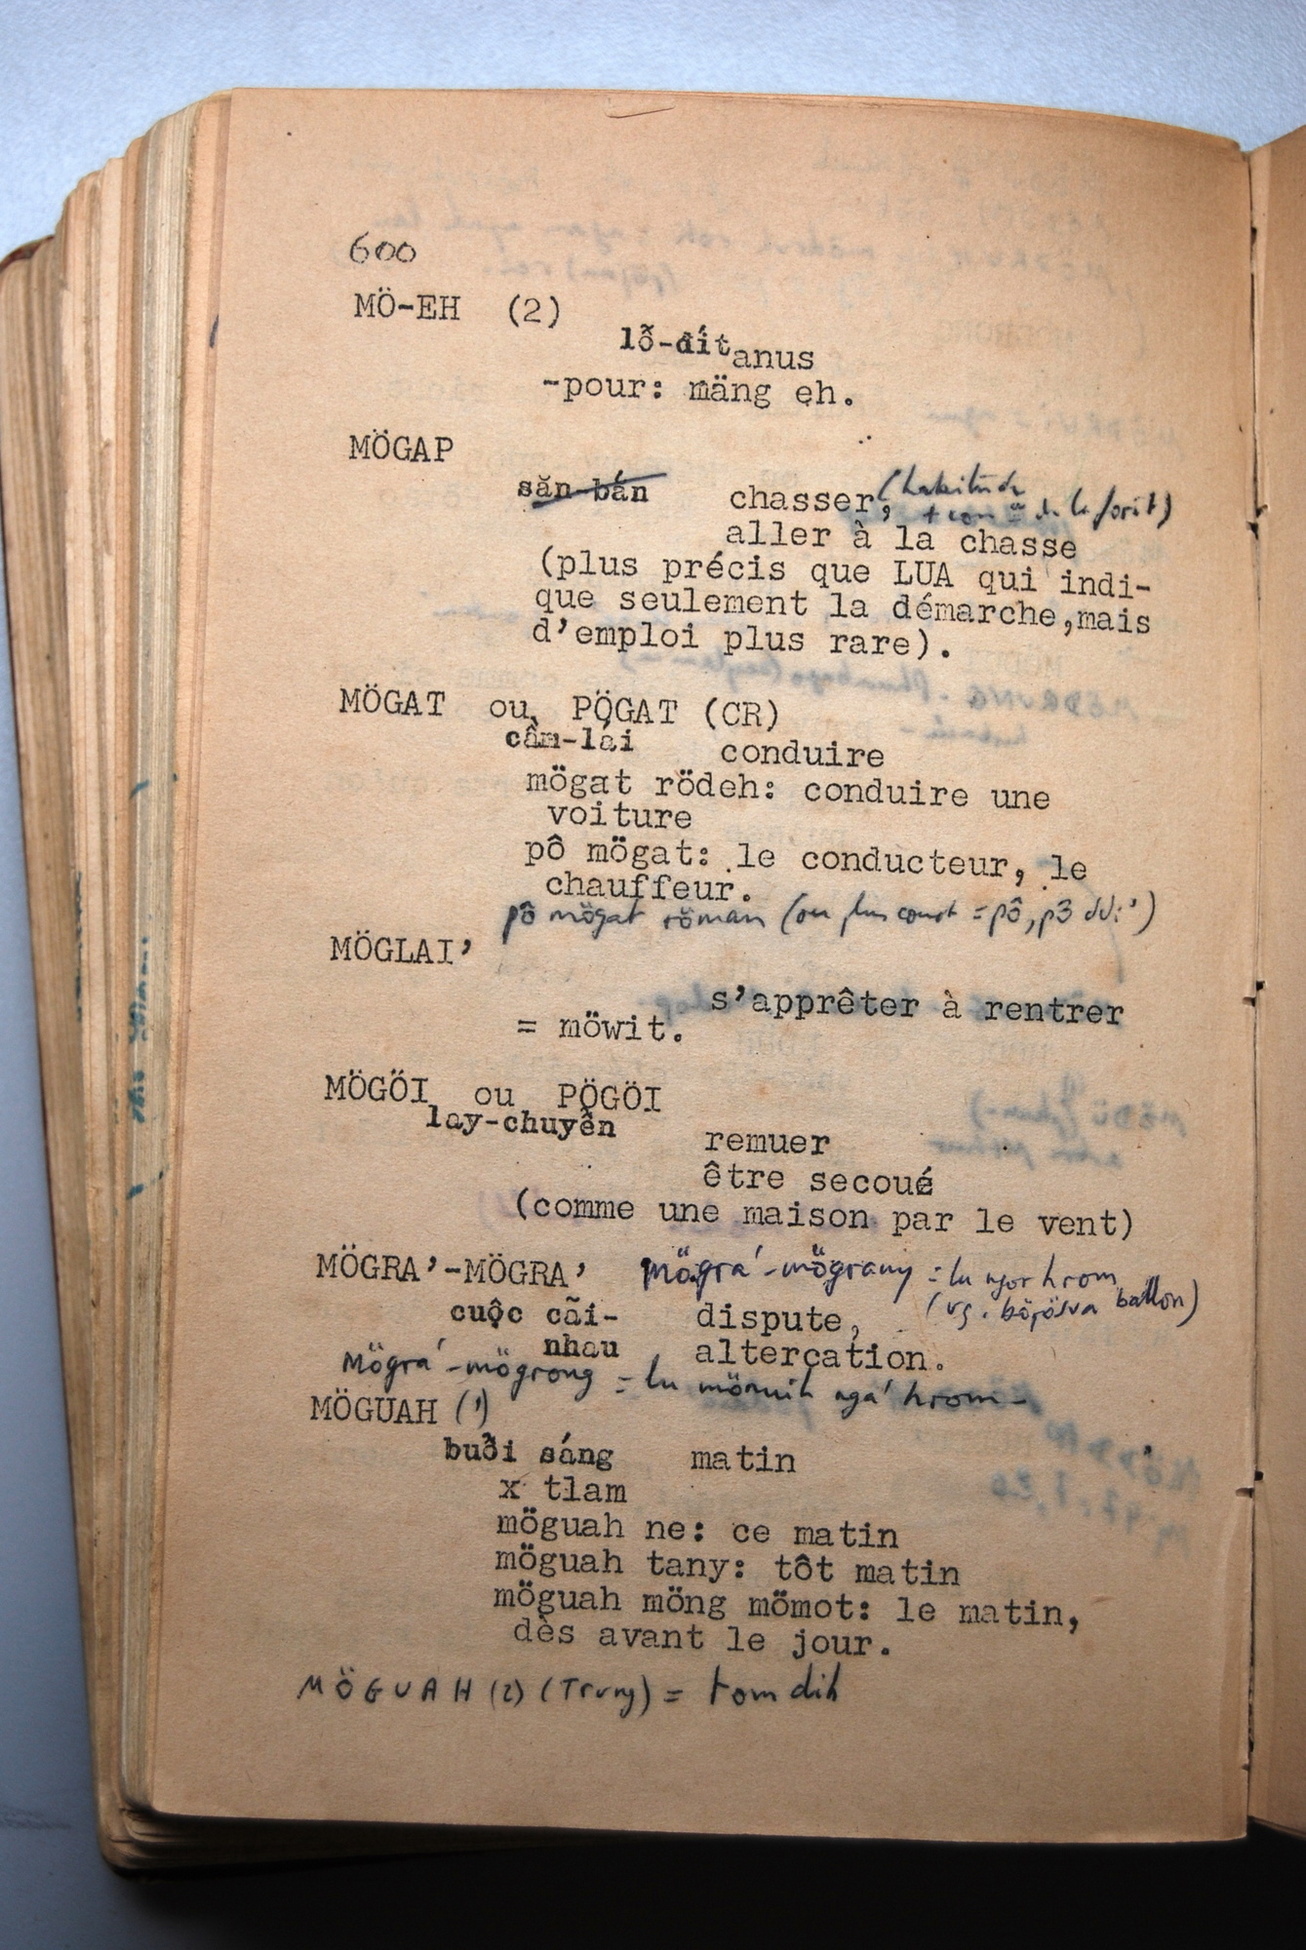 600
MÖ-EH (2)
lỗ-đít anus
-pour: mäng eh.
MÖGAP
săn-bắn chasser, (habitude
+ de la forêt)
aller à la chasse
(plus précis que LUA qui indi-
que seulement la démarche,mais
d'emploi plus rare).
MÖGAT ou PÖGAT (CR)
cầm-lái conduire
mögat rödeh: conduire une
voiture
pô mögat: le conducteur, le
chauffeur.
pô mögat röman (ou plus court = pô,
MÖGLAI'
s'apprêter à rentrer
= möwit.
MÖGÖI ou PÖGÖI
lay-chuyển
remuer
être secoué
(comme une maison par le vent)
MÖGRA'-MÖGRA' Mögra'-mögrany = lu hrom
cuộc cãi- dispute, (vg. ballon)
nhau altercation.
Mögra'-mögrong = lu hrom-
MÖGUAH (1)
buổi sáng matin
x tlam
möguah ne: ce matin
möguah tany: tôt matin
möguah möng mömot: le matin,
dès avant le jour.
MÖGUAH (2) (Trung) = tom dih